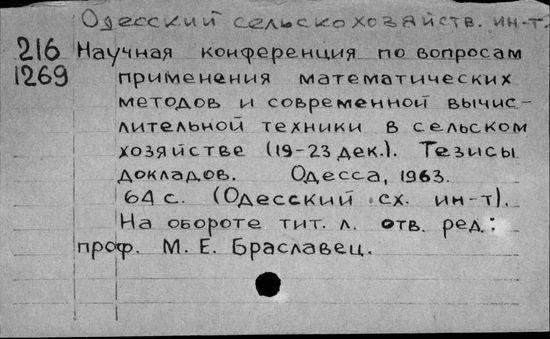 Одесский сельскохозяйств. ин-т.
216 Научная конференция по вопросам
1269 применения математических
методов и современной вычис-
лительной техники в сельском
хозяйстве (19-23 дек.). Тезисы
докладов. Одесса, 1963.
64 с. (Одесский сх. ин-т).
На обороте тит. л. отв. ред.:
проф. М. Е. Браславец.